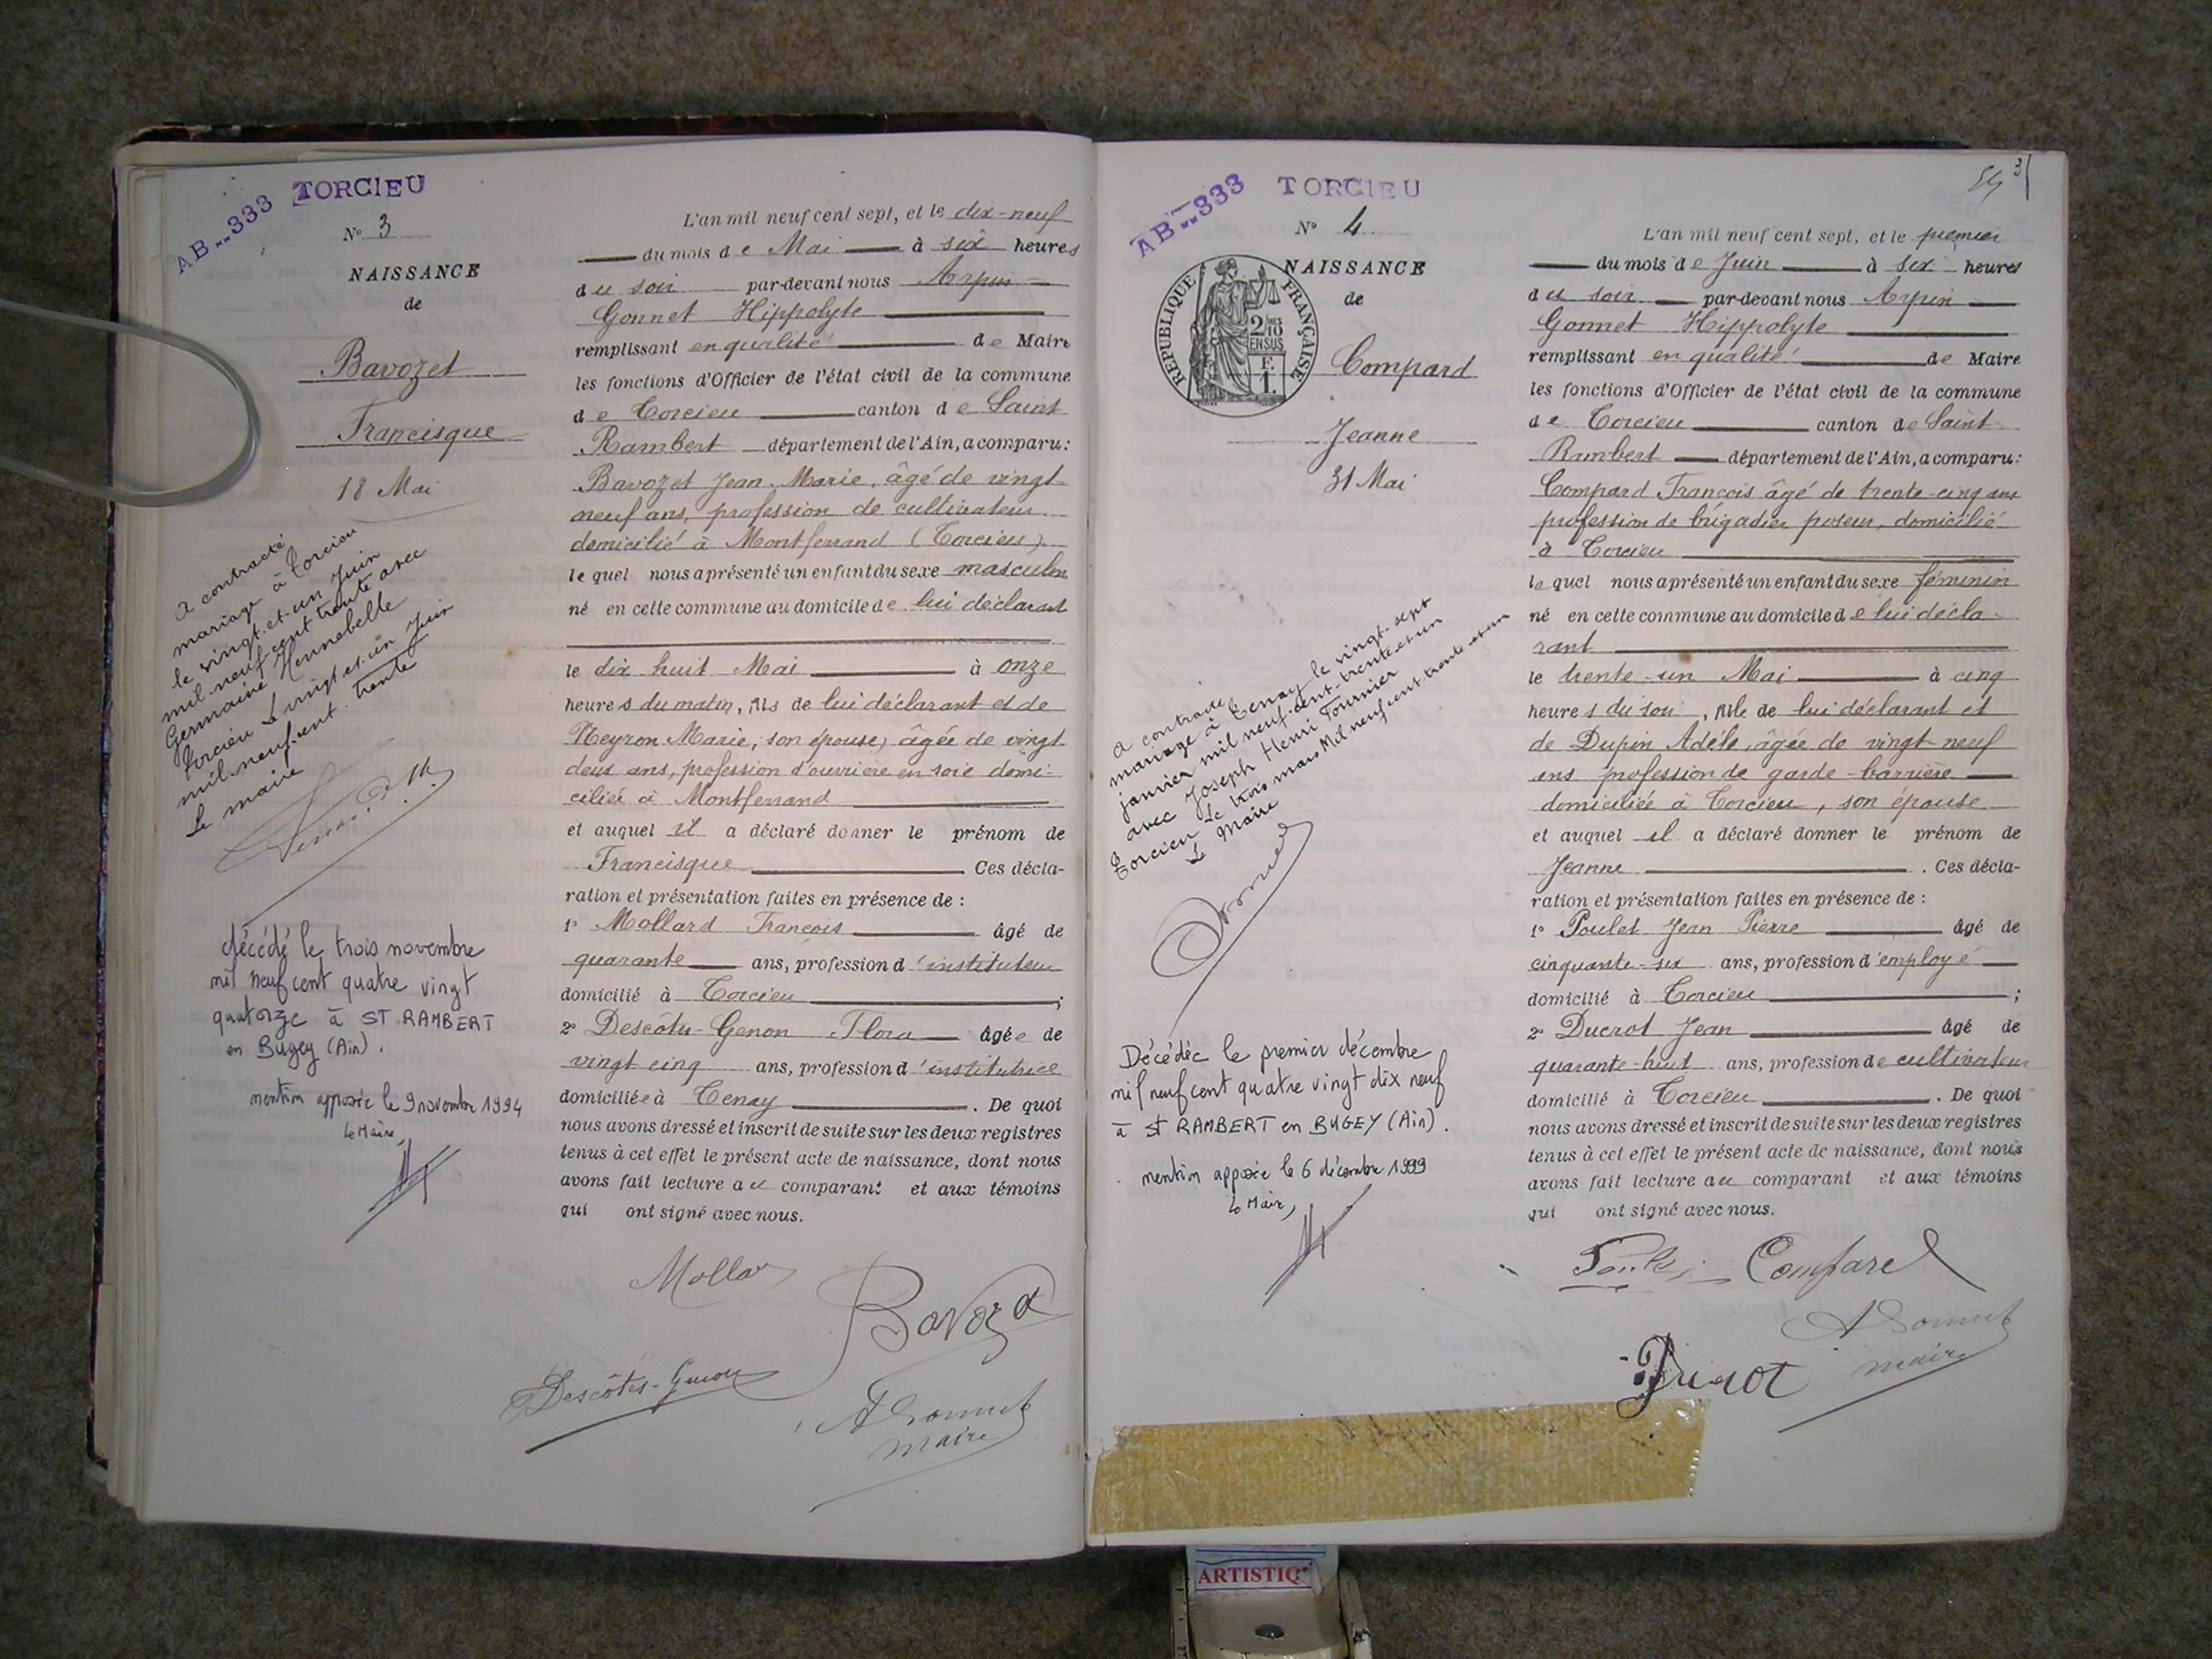 AB--333 TORCIEU
N° 3
NAISSANCE
de
Bavozet
Francisque
18 Mai
a contracté
mariage à Torcieu
le vingt-et-un Juin
mil neuf cent trente avec
Germaine Hennebelle
Torcieu le vingt et un Juin
mil neuf cent trente
Le maire
décédé le trois novembre
mil neuf cent quatre vingt
quatorze à ST RAMBERT
en Bugey (Ain).
mention apposée le 9 novembre 1994
Le Maire,
L'an mil neuf cent sept, et le dix-neuf
du mois de Mai à six heures
du soir par-devant nous Arpin
Gonnet Hippolyte
remplissant en qualité de Maire
les fonctions d'Officier de l'état civil de la commune
de Torcieu canton de Saint
Rambert département de l'Ain, a comparu:
Bavozet Jean Marie, âgé de vingt
neuf ans, profession de cultivateur
domicilié à Montferrand (Torcieu)
lequel nous a présenté un enfant du sexe masculin
né en cette commune au domicile de lui déclarant
le dix huit Mai à onze
heures du matin, fils de lui déclarant et de
Neyron Marie, son épouse, âgée de vingt
deux ans, profession d'ouvrière en soie domi-
ciliée à Montferrand
et auquel il a déclaré donner le prénom de
Francisque Ces décla-
ration et présentation faites en présence de :
1° Mollard François âgé de
quarante ans, profession d'instituteur
domicilié à Torcieu ;
2° Descôtes-Genon Flora âgée de
vingt cinq ans, profession d'institutrice
domiciliée à Tenay . De quoi
nous avons dressé et inscrit de suite sur les deux registres
tenus à cet effet le présent acte de naissance, dont nous
avons fait lecture au comparant et aux témoins
qui ont signé avec nous.
Mollar
Bavozet
Descôtes-Genon
A Gonnet
maire
AB--333 TORCIEU
N° 4
NAISSANCE
de
RÉPUBLIQUE FRANÇAISE
2/10 EN SUS
F. 1
Compard
Jeanne
31 Mai
a contracté
mariage à Tenay le vingt-sept
janvier mil neuf-cent-trente-et-un
avec Joseph Henri Tournier
Torcieu Le trois mars Mil neuf cent trente et un
Le Maire
Décédée le premier décembre
mil neuf cent quatre vingt dix neuf
à St RAMBERT en BUGEY (Ain).
mention apposée le 6 décembre 1999
Le Maire,
L'an mil neuf cent sept, et le premier
du mois de Juin à six heures
du soir par-devant nous Arpin
Gonnet Hippolyte
remplissant en qualité de Maire
les fonctions d'Officier de l'état civil de la commune
de Torcieu canton de Saint
Rambert département de l'Ain, a comparu:
Compard François âgé de trente-cinq ans
profession de brigadier poseur, domicilié
à Torcieu
lequel nous a présenté un enfant du sexe féminin
né en cette commune au domicile de lui décla-
rant
le trente-un Mai à cinq
heures du soir, fille de lui déclarant et
de Dupin Adèle, âgée de vingt neuf
ans profession de garde-barrière
domiciliée à Torcieu, son épouse
et auquel il a déclaré donner le prénom de
Jeanne . Ces décla-
ration et présentation faites en présence de :
1° Poulet Jean Pierre âgé de
cinquante-six ans, profession d'employé
domicilié à Torcieu ;
2° Ducrot Jean âgé de
quarante-huit ans, profession de cultivateur
domicilié à Torcieu . De quoi
nous avons dressé et inscrit de suite sur les deux registres
tenus à cet effet le présent acte de naissance, dont nous
avons fait lecture au comparant et aux témoins
qui ont signé avec nous.
Poulet Compard
A Gonnet
maire
Ducrot
ARTISTIQ